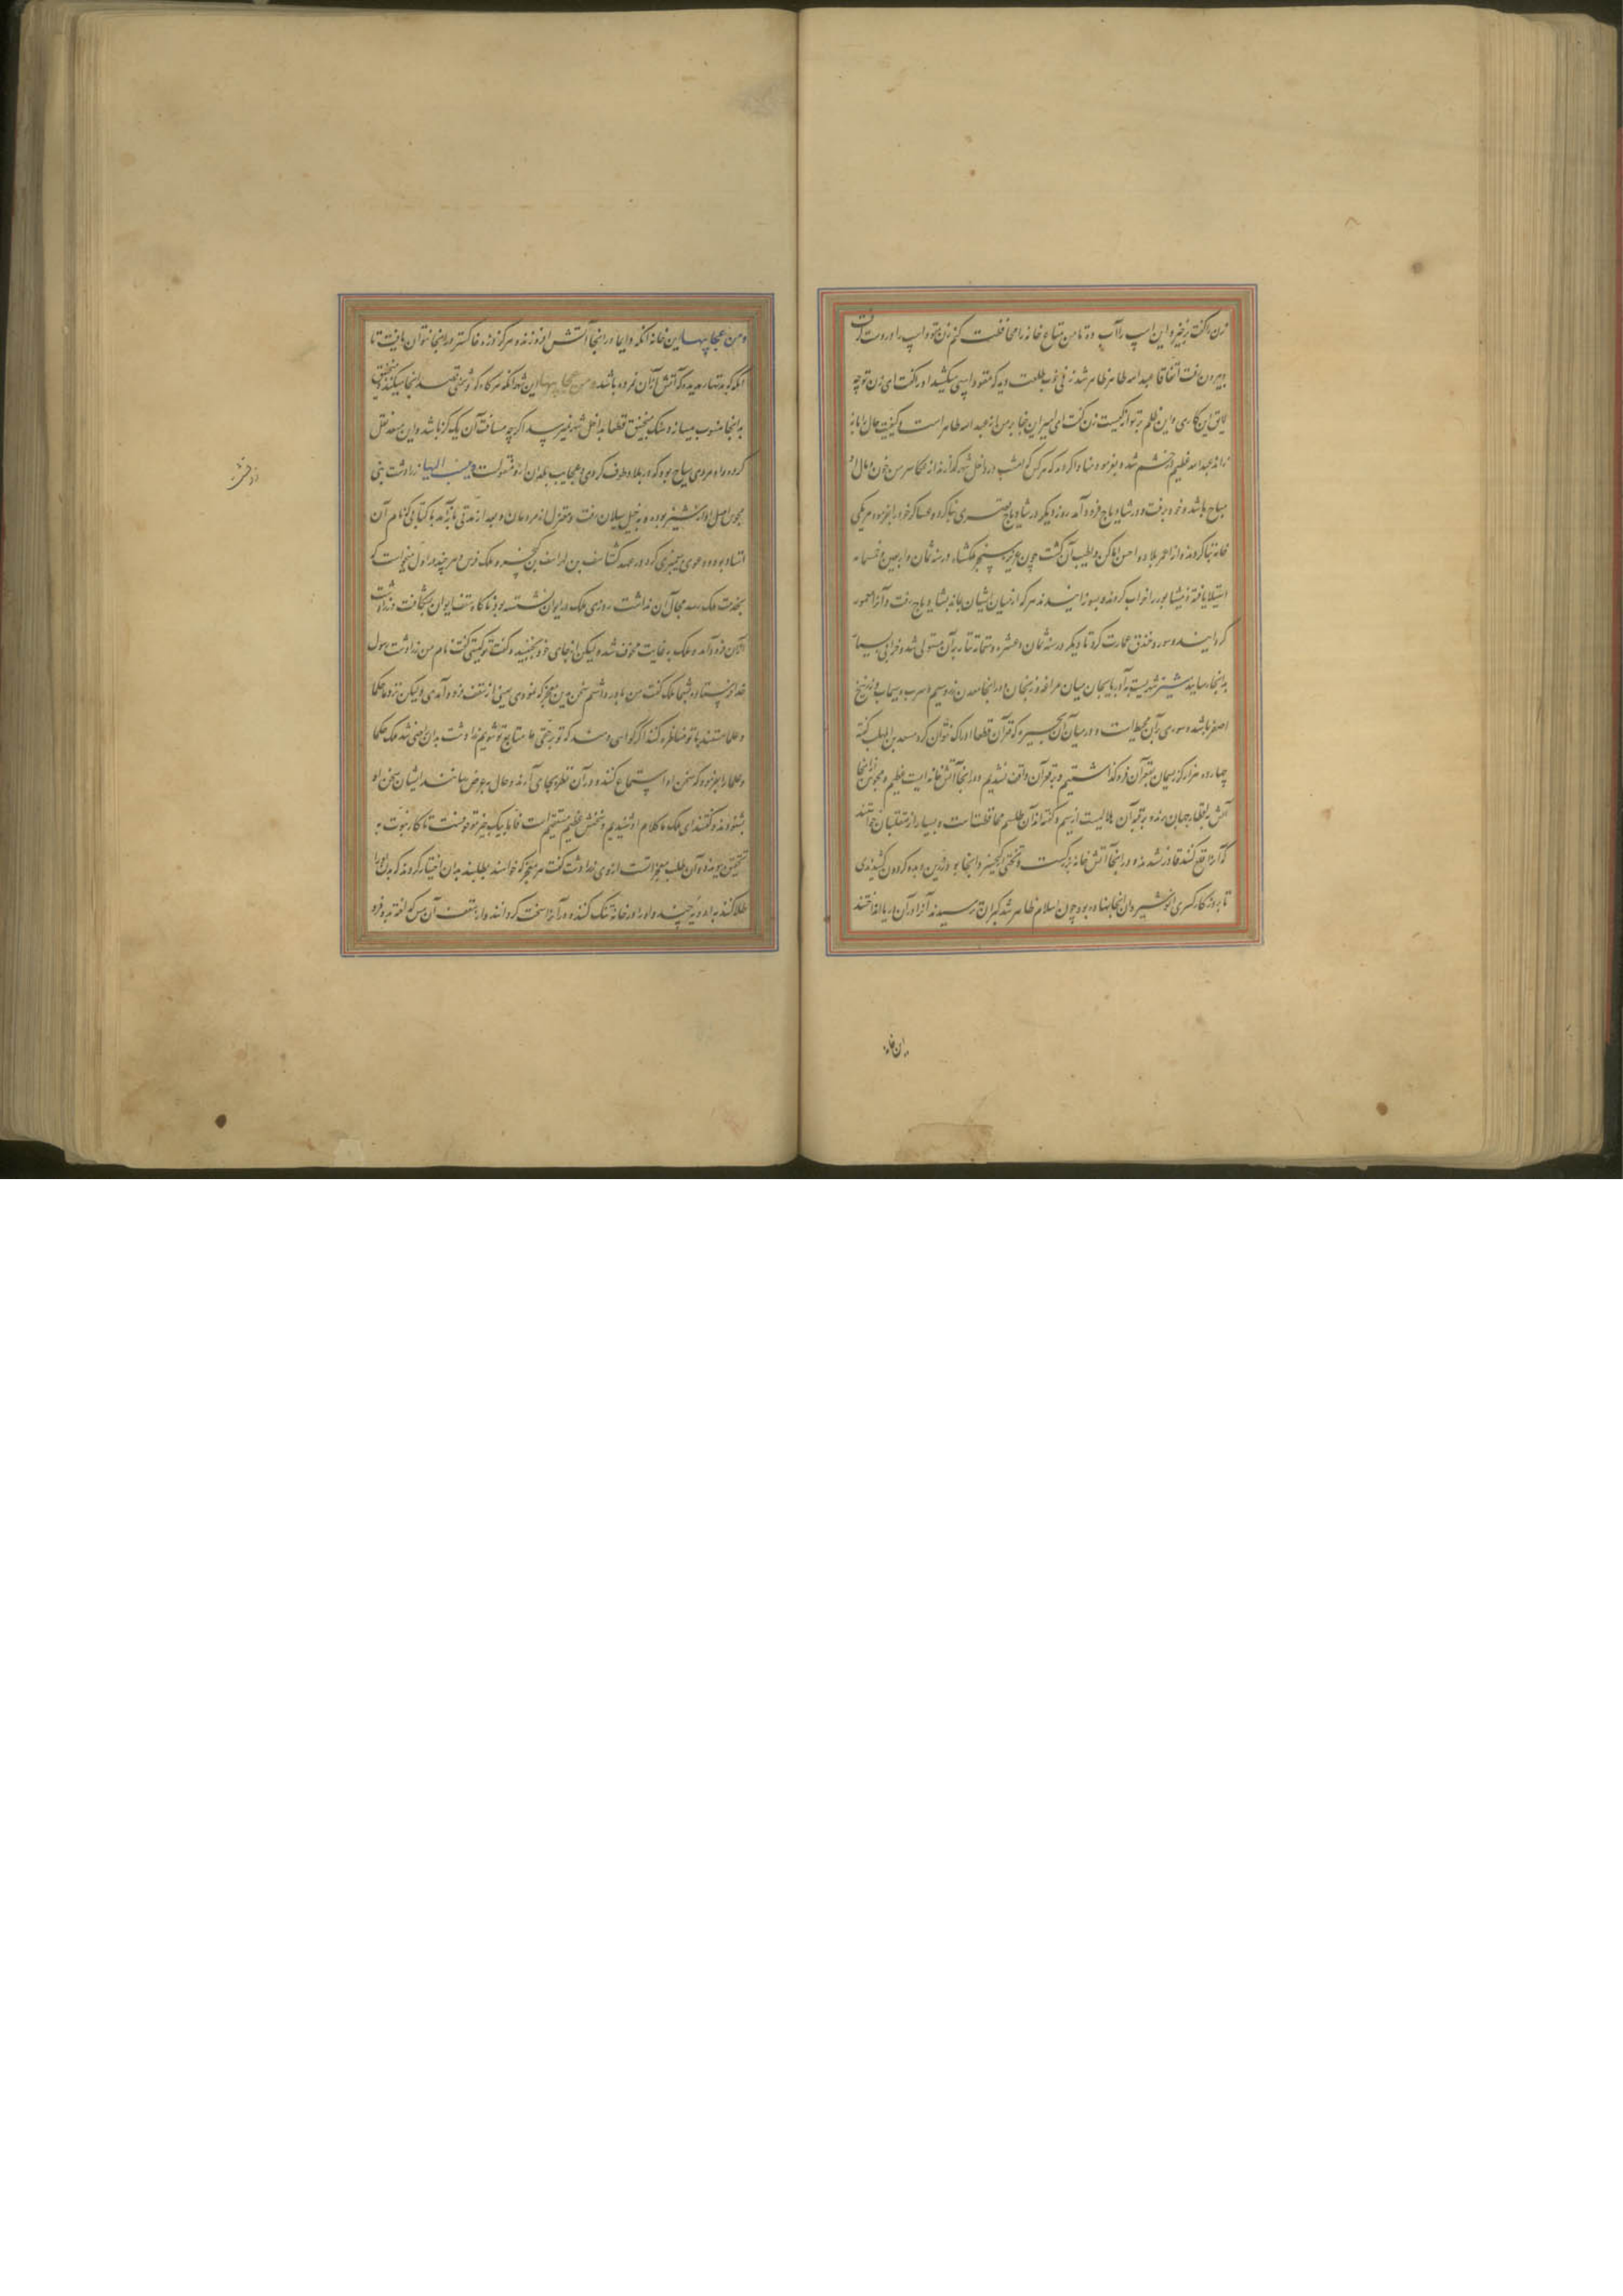 زن را گفت برخیز و این اسپ را آب ده تا من متاع خانه را محافظت کنم زن برخاست و اسپ را در دست گرفت
و بیرون رفت اتفاقا عبد الله طاهر ظاهر شد زنی خوب طلعت دید که مقود اسپی میکشید او را گفت ای زن تو چه
لایق این کاری و این ظلم بر تو از کیست زن گفت ای امیر این جفا بر من از عبد الله طاهر است و کیفیت حال را باز
راند عبد الله عظیم در خشم شد و بفرمود و منادا کردند که هر کس که امشب در داخل شهر گذراند از لشکر من خون و مال او
مباح باشد و خود برفت و در شادیاخ فرود آمد روز دیگر در شادیاخ قصری بنا کرد و عساکر خود را بفرمود هر یکی
خانه بنا کردند و از اعمر بلاد و احسن اماکن و اطیب آن گشت چون غز بر سنجر ملکشاه در سنه ثمان و اربعین و خمسمایه
استیلا یافتند و نیشابور را خراب کردند و بسوزانیدند هر که از میان ایشان بماند بشادیاخ رفت و آنرا معمور
گردانیدند و سور و خندق عمارت کرد تا دیگر در سنه ثمان و عشره و ستمائة تتار بر آن مستولی شد و خرابی بسیار
بدانجا رسانید شیز شهریست بآذربایجان میان مراغه و زنجان و در انجا معدن زر و سیم و سرب و سیماب و زرنیخ
اصفر باشد و سوری بر آن محیط است و در میان آن بحیره که قرآن قطعا ادراک نتوان کرد مسعد بن المهلب گفته
چهارده هزار گز ریسمان بقعر آن فرو گذاشتیم و بر قعر آن واقف نشدیم و در انجا آتش خانه ایست عظیم و مجوس از انجا
آتش باقطار جهان برند و بر قبه آن هلالیست از سیم و گفته اند آن طلسم محافظت است و بسیار از متغلبان خواستند
که آنرا قلع کنند قادر نشدند و در انجا آتش خانه بزرگست و تختی کیخسرو را انجا بود زرین و بده گردون کشیدندی
تا بروزگار کسری انوشیروان انجا نهاده بود چون اسلام ظاهر شد گبران ترسیدند آنرا در آن دریا انداختند
این خانه
و من عجایبها این خانه آنکه دایما در انجا آتش افروزند و هرگز ذره خاکستر در انجا نتوان یافت تا
و من عجایبها این شهر آنکه هرگاه که دشمنی قصد انجا میکند و منجنیق
به انجا منسوب میسازد سنگ منجنیق قطعا بداخل شهر نمیرسد اگرچه مسافت آن یک گز باشد و این مسعد نقل
کرده و او مردی سیاح بوده که در بلاد طوف کردی و عجایب بلدان ازو منقولست و ینسب الیها زرادشت نبی
مجوس اصل او از شیز بوده و به جبل سیلان رفت و معتزل از مردمان و بعد از مدتی باز آمد با کتابی که نام آن
استا بود و دعوی پیغمبری کرد در عهد گشتاسف بن لهراسف بن کیخسرو ملک فرس و هر چند در اول میخواست که
بخدمت ملک رسد مجال آن نداشت روزی ملک در ایوان نشسته بود ناگاه سقف ایوان بشکافت و زرادشت
از آن فرود آمد و ملک به غایت مخوف شد و لیکن از جای خود نجنبید و گفت تو کیستی گفت نام من زرادشت رسول
خدا فرستاده بشما ملک گفت من باور داشتم سخن من این معجز که نمودی یعنی از سقف فرود آمدی و لیکن نزد ما حکما
و علما هستند با تو مناظره کنند اگر گواهی دهند که تو بر حقی ما متابع تو شویم زرادشت بدان راضی شد ملک حکما
و علما را بفرمود که سخن او استماع کنند و در آن نظر بجای آرند و حال معروض رسانند ایشان سخن او
بشنودند و گفتند ای ملک ما کلام او شنیدیم و سخنش عظیم مستقیم است فاما بیک چیز موقوفست تا کار نبوت به
تحقیق پیوندد و آن طلب معجز است از وی زرادشت گفت هر معجز که خواهند بطلبند بدان اختیار کردند که بدن او را
طلا کنند به ادویه چند و او را در خانه تنگ کنند و در آنرا سخت گردانند و از سقف آن مس گداخته برو فرو
زردشت